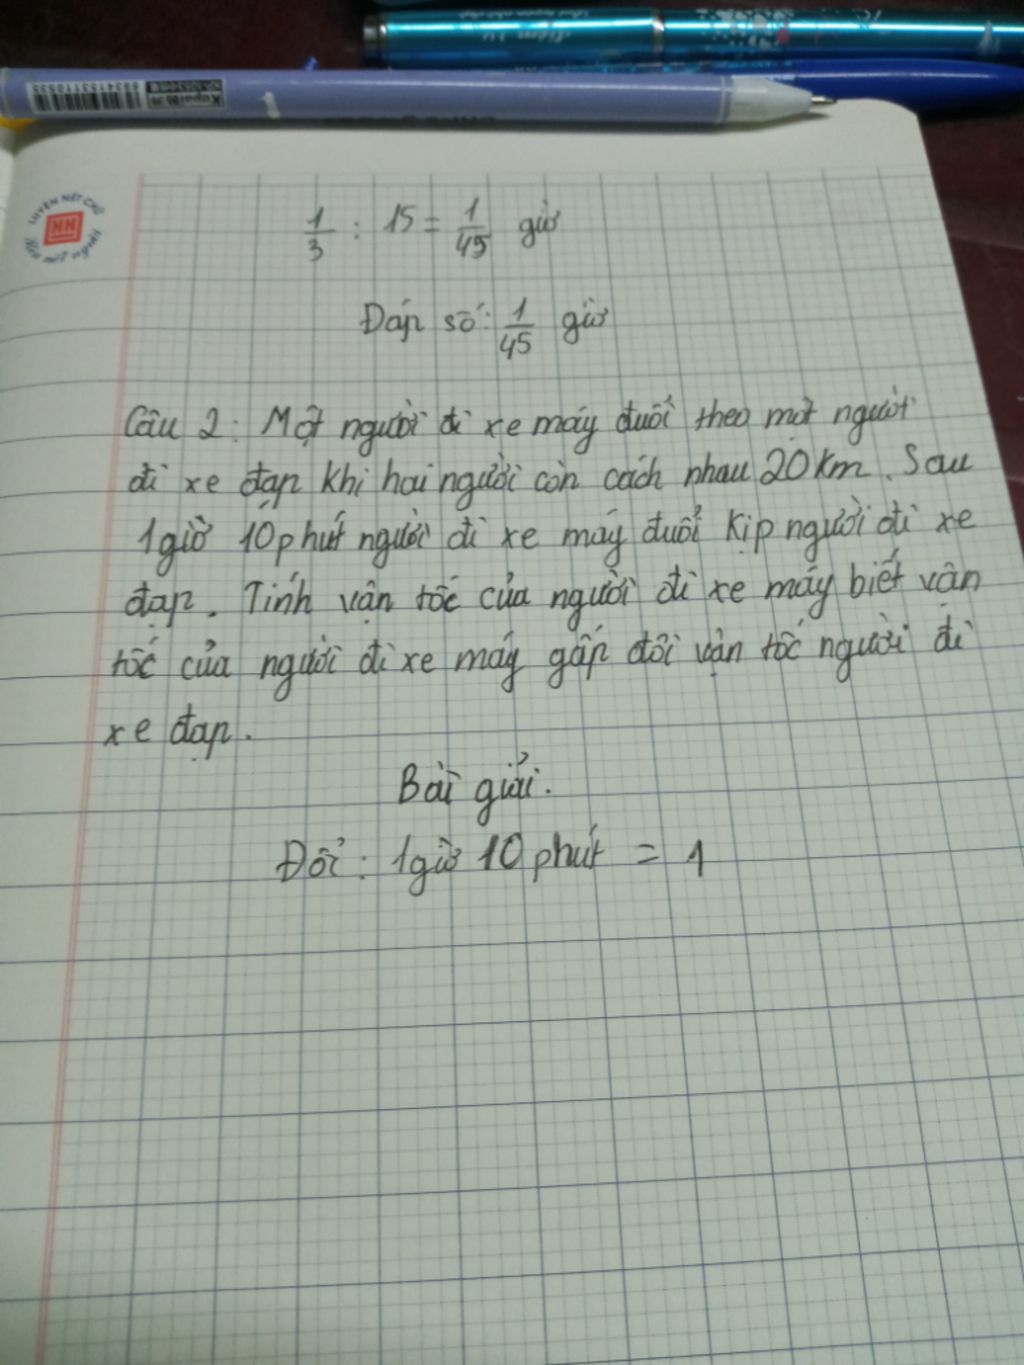 1/3 : 15 = 1/45 giờ
Đáp số: 1/45 giờ
Câu 2: Một người đi xe máy đuổi theo một người
đi xe đạp khi hai người còn cách nhau 20km. Sau
1giờ 10phút người đi xe máy đuổi kịp người đi xe
đạp. Tính vận tốc của người đi xe máy biết vận
tốc của người đi xe máy gấp đôi vận tốc người đi
xe đạp.
Bài giải.
Đổi: 1giờ 10 phút = 1
LUYỆN NÉT CHỮ
Rèn nết người